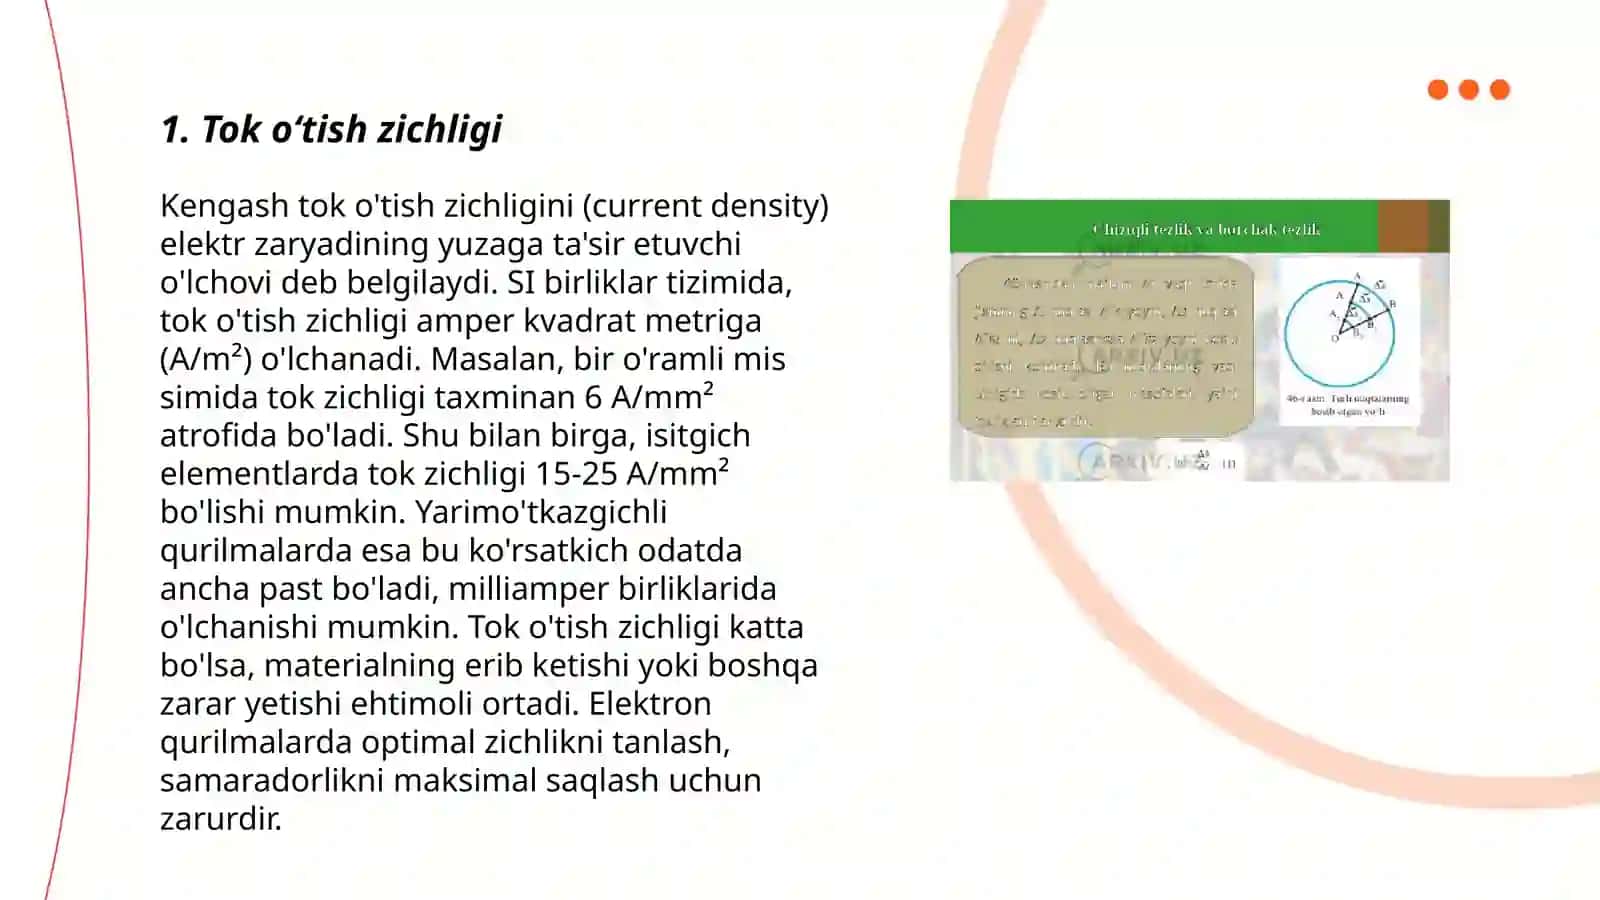 1. Tok o‘tish zichligi
Kengash tok o'tish zichligini (current density)
elektr zaryadining yuzaga ta'sir etuvchi
o'lchovi deb belgilaydi. SI birliklar tizimida,
tok o'tish zichligi amper kvadrat metriga
(A/m²) o'lchanadi. Masalan, bir o'ramli mis
simida tok zichligi taxminan 6 A/mm²
atrofida bo'ladi. Shu bilan birga, isitgich
elementlarda tok zichligi 15-25 A/mm²
bo'lishi mumkin. Yarimo'tkazgichli
qurilmalarda esa bu ko'rsatkich odatda
ancha past bo'ladi, milliamper birliklarida
o'lchanishi mumkin. Tok o'tish zichligi katta
bo'lsa, materialning erib ketishi yoki boshqa
zarar yetishi ehtimoli ortadi. Elektron
qurilmalarda optimal zichlikni tanlash,
samaradorlikni maksimal saqlash uchun
zarurdir.
Chiziqli tezlik va burchak tezlik
ARXIV.UZ
46-rasm. Turli nuqtalarning
bosib o'tgan yo'li
ARXIV.UZ